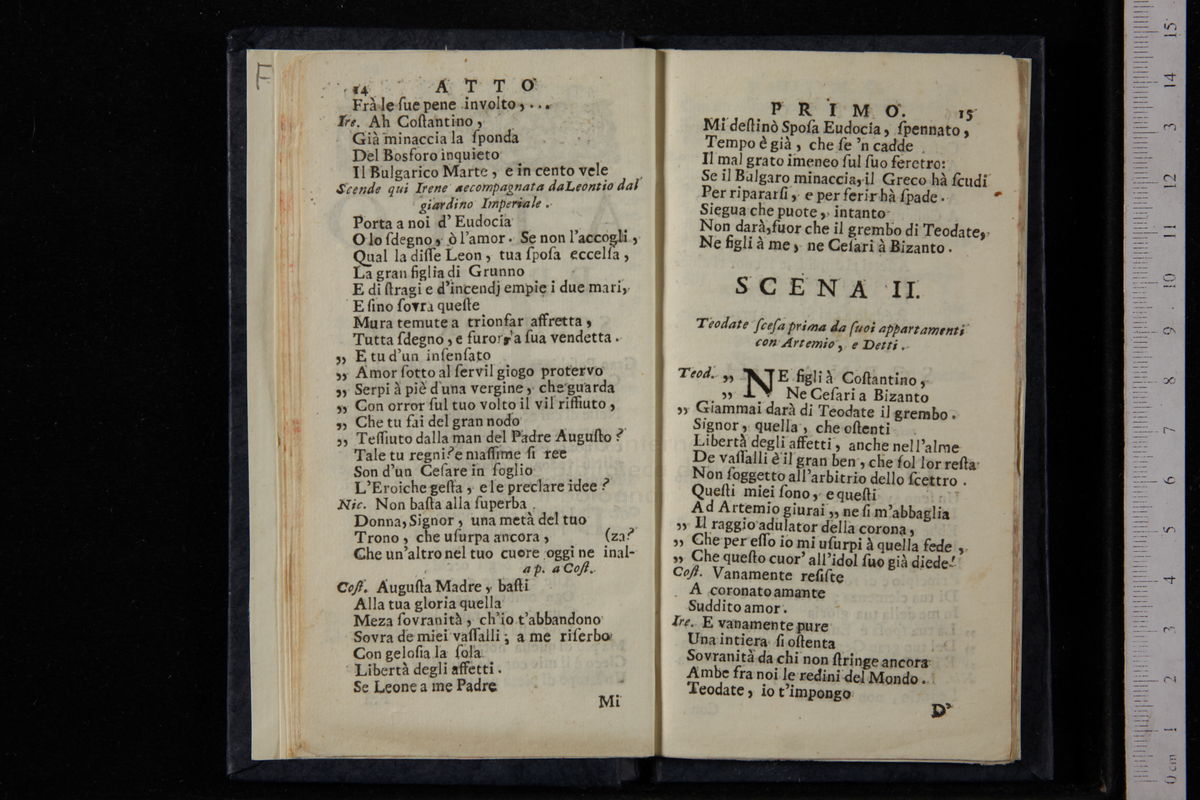 F
14 ATTO
Frà le ſue pene involto, ...
Ire. Ah Coſtantino,
Già minaccia la ſponda
Del Bosforo inquieto
Il Bulgarico Marte, e in cento vele
Scende qui Irene aecompagnata da Leontio dal
giardino Imperiale.
Porta a noi d' Eudocia
O lo ſdegno, ò l'amor. Se non l'accogli,
Qual la diſſe Leon, tua ſpoſa eccelſa,
La gran figlia di Grunno
E di ſtragi e d'incendj empie i due mari,
E ſino ſovra queſte
Mura temute a trionfar affretta,
Tutta ſdegno, e furor, a ſua vendetta.
„ E tu d'un inſenſato
„ Amor ſotto al ſervil giogo protervo
„ Serpi à piè d'una vergine, che guarda
„ Con orror ſul tuo volto il vil riffiuto,
„ Che tu fai del gran nodo
„ Teſſiuto dalla man del Padre Auguſto?
Tale tu regni? e maſſime ſi ree
Son d'un Ceſare in ſoglio
L'Eroiche geſta, e le preclare idee?
Nic. Non baſta alla ſuperba
Donna, Signor, una metà del tuo
Trono, che uſurpa ancora, (za?
Che un'altro nel tuo cuore oggi ne inal-
a p. a Coſt.
Coſt. Auguſta Madre, baſti
Alla tua gloria quella
Meza ſovranità, ch'io t'abbandono
Sovra de miei vaſſalli; a me riſerbo
Con geloſia la ſola
Libertà degli affetti.
Se Leone a me Padre
Mi
PRIMO. 15
Mi deſtinò Spoſa Eudocia, ſpennato,
Tempo è già, che ſe 'n cadde
Il mal grato imeneo ſul ſuo feretro:
Se il Bulgaro minaccia, il Greco hà ſcudi
Per ripararſi, e per ferir hà ſpade.
Siegua che puote, intanto
Non darà, fuor che il grembo di Teodate,
Ne figli à me, ne Ceſari à Bizanto.
SCENA II.
Teodate ſceſa prima da ſuoi appartamenti
con Artemio, e Detti.
Teod. „ NE figli à Coſtantino,
„ Ne Ceſari a Bizanto
„ Giammai darà di Teodate il grembo.
Signor, quella, che oſtenti
Libertà degli affetti, anche nell'alme
De vaſſalli è il gran ben, che ſol lor reſta
Non ſoggetto all'arbitrio dello ſcettro.
Queſti miei ſono, e queſti
Ad Artemio giurai „ ne ſi m'abbaglia
„ Il raggio adulator della corona,
„ Che per eſſo io mi uſurpi à quella fede,
„ Che queſto cuor' all'idol ſuo già diede!
Coſt. Vanamente reſiſte
A coronato amante
Suddito amor.
Ire. E vanamente pure
Una intiera ſi oſtenta
Sovranità da chi non ſtringe ancora
Ambe fra noi le redini del Mondo.
Teodate, io t'impongo
D'
0 cm 1 2 3 4 5 6 7 8 9 10 11 12 13 14 15